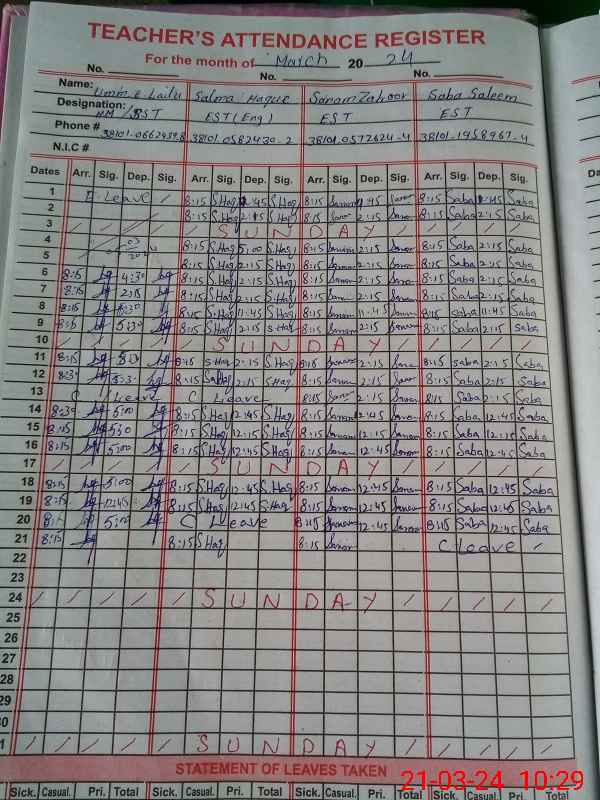 TEACHER'S ATTENDANCE REGISTER
For the month of March 2024
No. No. No.
Name: Umm E Laila Salma Haque Sanam Zahoor Saba Saleem
Designation: HM / SST EST (Eng) EST EST
Phone # 38101-0582430-2 38101-0572624-4 38101-1958967-4
N.I.C #
Dates Arr. Sig. Dep. Sig. Arr. Sig. Dep. Sig. Arr. Sig. Dep. Sig. Arr. Sig. Dep. Sig.
1 Leave 8:15 S.Haq S.Haq 8:15 8:15 Saba Saba
2 8:15 S.Haq 2:15 S.Haq 8:15 2:15 8:15 Saba 2:15 Saba
3 SUNDAY
4 8:15 S.Haq 5:00 S.Haq 8:15 2:15 8:15 Saba 2:15 Saba
5 8:15 S.Haq 2:15 S.Haq 8:15 2:15 8:15 Saba 2:15 Saba
6 8:15 4:30 8:15 S.Haq 2:15 S.Haq 8:15 2:15 8:15 Saba 2:15 Saba
7 8:15 2:15 8:15 S.Haq 2:15 S.Haq 8:15 2:15 8:15 Saba 2:15 Saba
8 8:15 8:15 S.Haq 11:45 S.Haq 8:15 11:45 8:15 Saba 11:45 Saba
9 8:15 5:30 8:15 S.Haq 2:15 S.Haq 8:15 2:15 8:15 Saba 2:15 Saba
10 SUNDAY
11 8:15 8:15 S.Haq 2:15 S.Haq 8:15 2:15 8:15 Saba 2:15 Saba
12 8:30 8:15 2:15 S.Haq 8:15 2:15 8:15 Saba 2:15 Saba
13 C Leave C Leave 8:15 2:15 8:15 Saba 2:15 Saba
14 8:30 5:00 8:15 S.Haq 12:45 S.Haq 8:15 12:45 8:15 Saba 12:45 Saba
15 8:15 5:30 8:15 S.Haq 12:15 S.Haq 8:15 12:15 8:15 Saba 12:15 Saba
16 8:15 5:00 8:15 S.Haq 12:45 S.Haq 8:15 12:45 8:15 Saba 12:45 Saba
17 SUNDAY
18 8:15 5:00 8:15 S.Haq 12:45 S.Haq 8:15 12:45 8:15 Saba 12:45 Saba
19 8:15 12:45 8:15 S.Haq 12:45 S.Haq 8:15 12:45 8:15 Saba 12:45 Saba
20 8:15 5:00 C Leave 8:15 12:45 8:15 Saba 12:45 Saba
21 8:15 8:15 S.Haq 8:15 C Leave
22
23
24 SUNDAY
25
26
27
28
29
30
1 SUNDAY
STATEMENT OF LEAVES TAKEN
Sick. Casual. Pri. Total Sick. Casual. Pri. Total Sick. Casual. Pri. Total
21-03-24 10:29